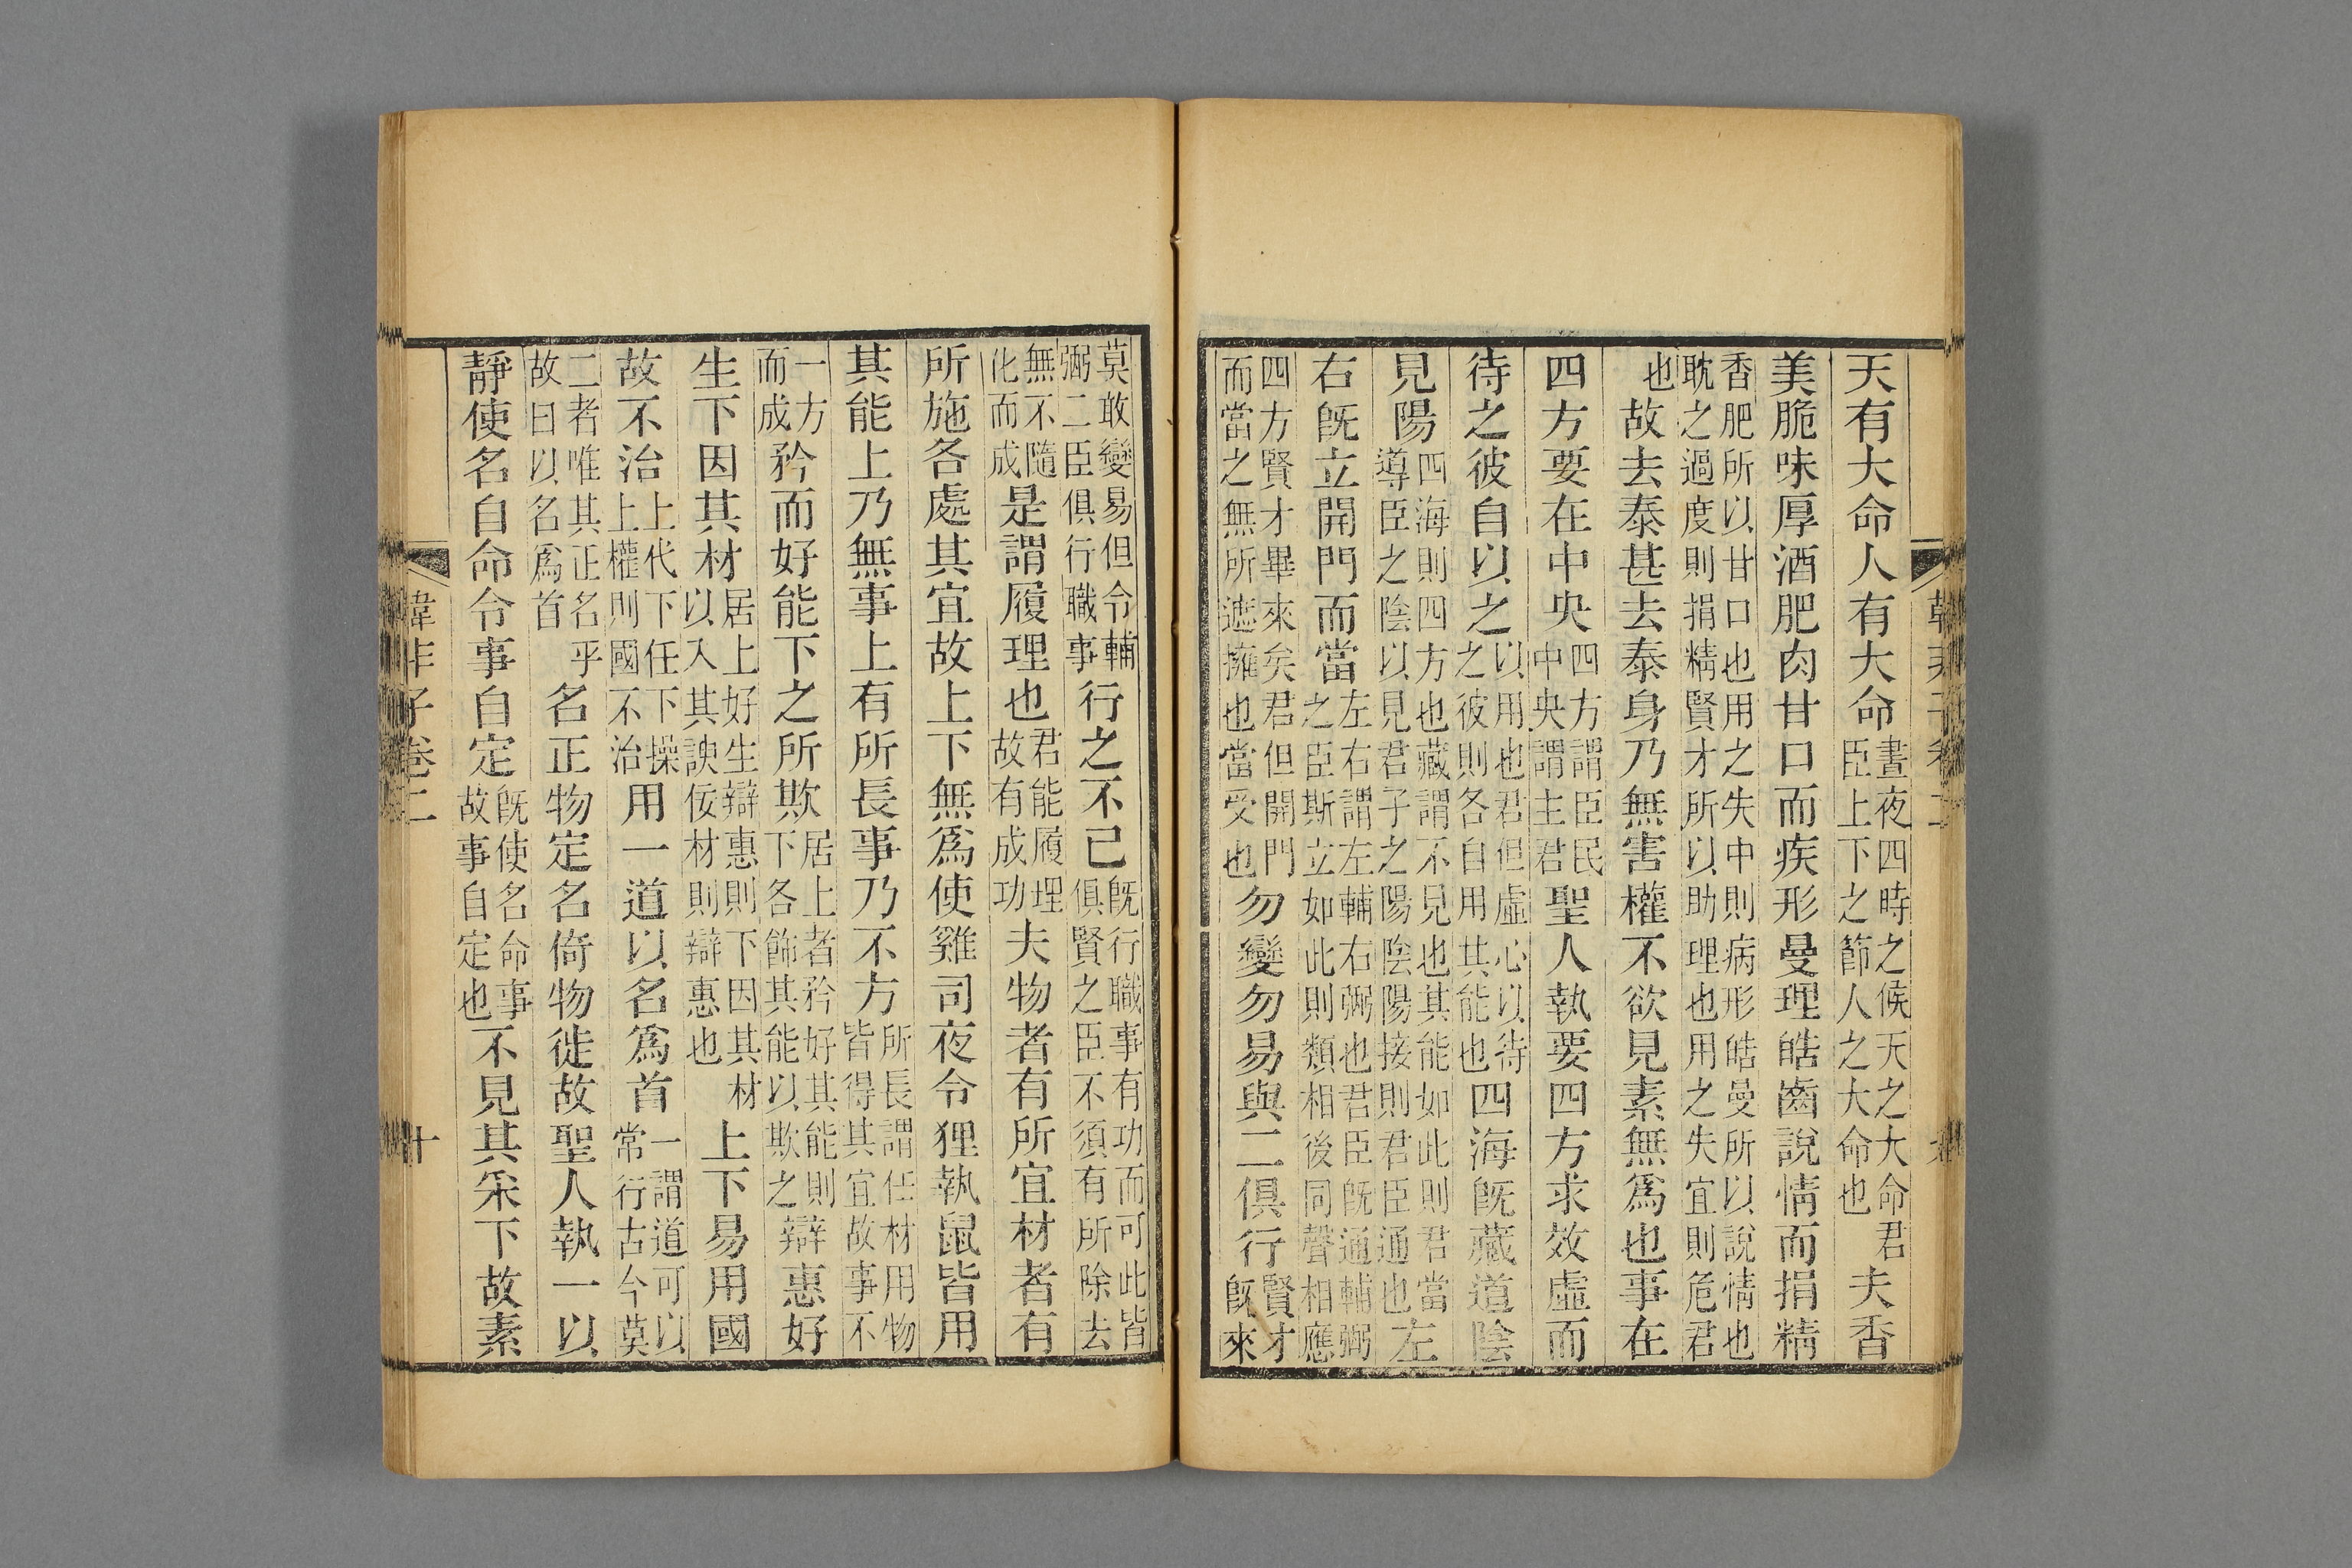 天有大命人有大命晝夜四時之候天之大命君臣上下之節人之大命也夫香
美脆味厚酒肥肉甘口而疾形曼理皓齒說情而捐精
香肥所以甘口也用之失中則病形皓曼所以說情也耽之過度則捐精賢才所以助理也用之失宜則危君
也故去泰甚去泰身乃無害權不欲見素無爲也事在
四方要在中央四方謂臣民中央謂主君聖人執要四方求效虛而
待之彼自以之以用也君但虛心以待之彼則各自用其能也四海旣藏道陰
見陽四海則四方也藏謂不見也其能如此則君當導臣之陰以見君子之陽陰陽接則君臣通也左
右旣立開門而當左右謂左輔右弼也君臣旣通輔弼之臣斯立如此則類相後同聲相應
四方賢才畢來矣君但開門而當之無所遮擁也當受也勿變勿易與二俱行賢才旣來
莫敢變易但令輔弼二臣俱行職事行之不已旣行職事有功而可此皆俱賢之臣不須有所除去
無不隨化而成是謂履理也君能履理故有成功夫物者有所宜材者有
所施各處其宜故上下無爲使雞司夜令狸執鼠皆用
其能上乃無事上有所長事乃不方所長謂任材用物皆得其宜故事不
一方而成矜而好能下之所欺居上者矜好其能則下各飾其能以欺之辯惠好
生下因其材居上好生辯惠則下因其材以入其諛佞材則辯惠也上下易用國
故不治上代下任下操上權則國不治用一道以名爲首一謂道可以常行古今莫
二者唯其正名乎故曰以名爲首名正物定名倚物徙故聖人執一以
靜使名自命令事自定旣使名命事故事自定也不見其采下故素
韓非子卷二
十